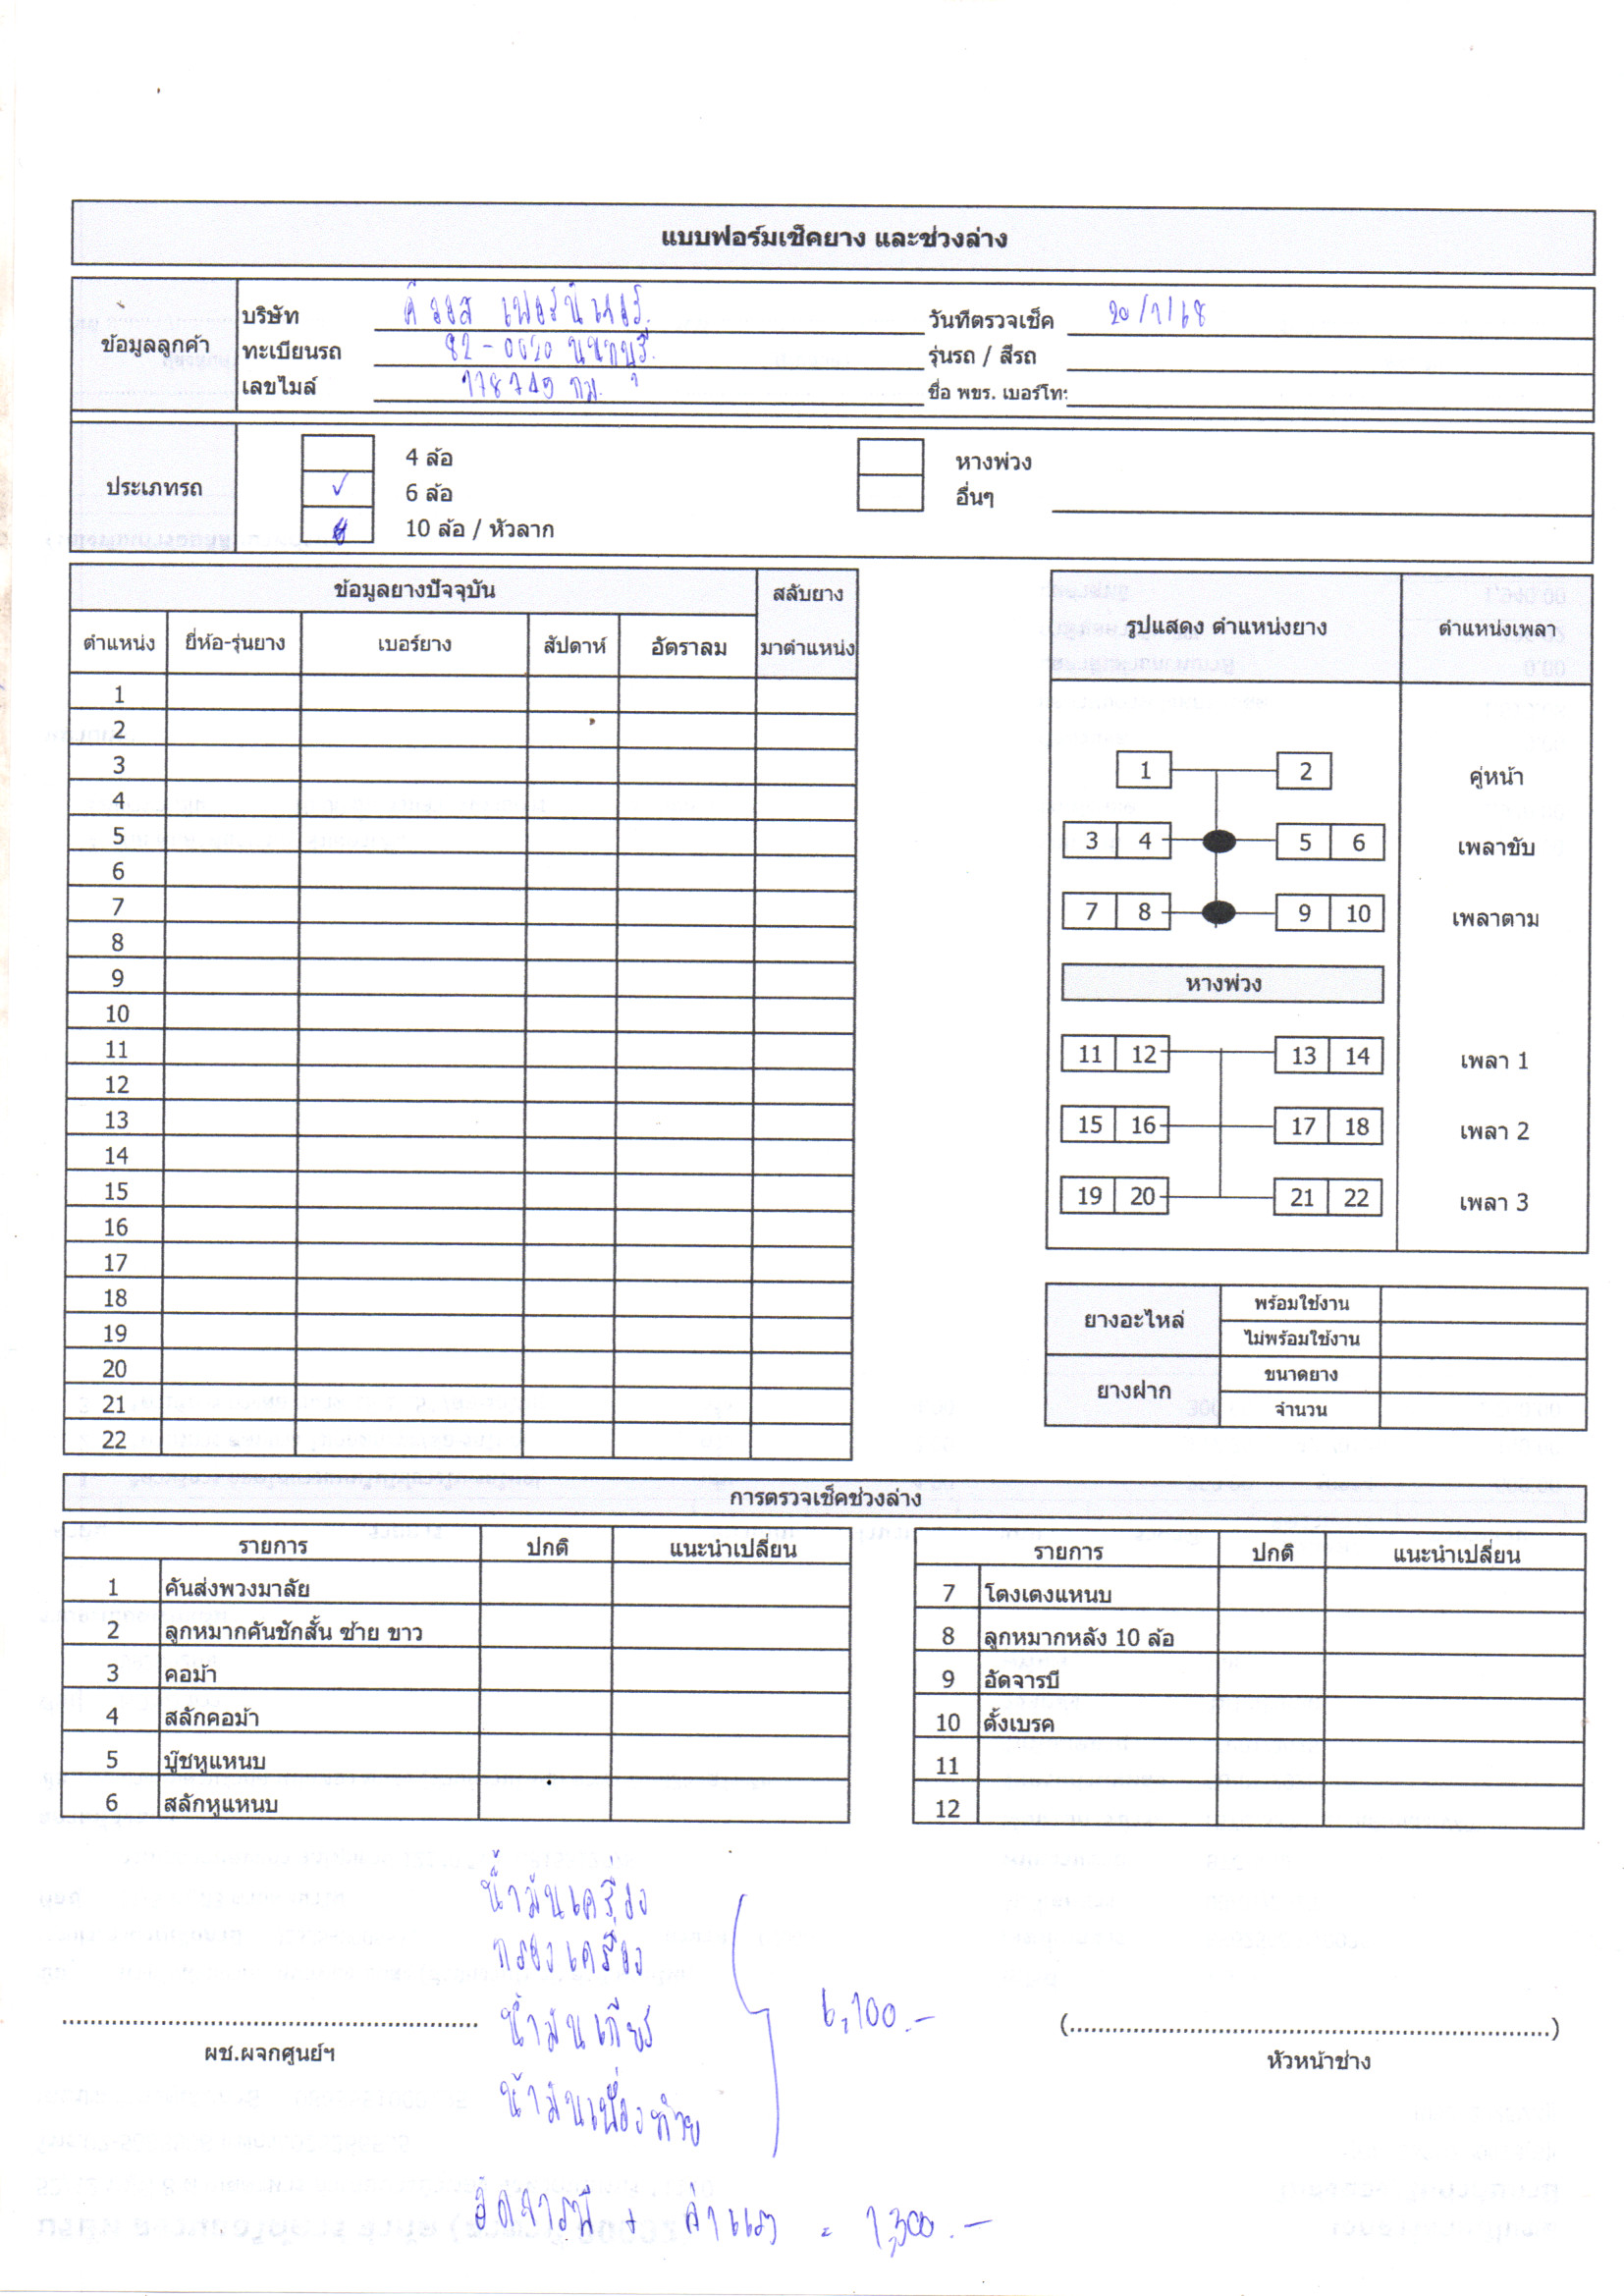 แบบฟอร์มเช็คยาง และช่วงล่าง
ข้อมูลลูกค้า
บริษัท ดีออส เฟอร์นิเจอร์.
ทะเบียนรถ 82-0020 นนทบุรี.
เลขไมล์ 178749 กม.
วันที่ตรวจเช็ค 20/1/68
รุ่นรถ / สีรถ
ชื่อ พขร. เบอร์โทร
ประเภทรถ
4 ล้อ
✓ 6 ล้อ
10 ล้อ / หัวลาก
หางพ่วง
อื่นๆ
ข้อมูลยางปัจจุบัน สลับยาง
ตำแหน่ง ยี่ห้อ-รุ่นยาง เบอร์ยาง สัปดาห์ อัตราลม มาตำแหน่ง
1
2
3
4
5
6
7
8
9
10
11
12
13
14
15
16
17
18
19
20
21
22
รูปแสดง ตำแหน่งยาง ตำแหน่งเพลา
1 2 คู่หน้า
3 4 5 6 เพลาขับ
7 8 9 10 เพลาตาม
หางพ่วง
11 12 13 14 เพลา 1
15 16 17 18 เพลา 2
19 20 21 22 เพลา 3
ยางอะไหล่ พร้อมใช้งาน
ไม่พร้อมใช้งาน
ยางฝาก ขนาดยาง
จำนวน
การตรวจเช็คช่วงล่าง
รายการ ปกติ แนะนำเปลี่ยน
1 คันส่งพวงมาลัย
2 ลูกหมากคันชักสั้น ซ้าย ขาว
3 คอม้า
4 สลักคอม้า
5 บู๊ชหูแหนบ
6 สลักหูแหนบ
รายการ ปกติ แนะนำเปลี่ยน
7 โตงเตงแหนบ
8 ลูกหมากหลัง 10 ล้อ
9 อัดจารบี
10 ตั้งเบรค
11
12
น้ำมันเครื่อง
กรองเครื่อง
น้ำมันเกียร์
น้ำมันเฟืองท้าย
6,100.-
ผช.ผจกศูนย์ฯ
(...............)
หัวหน้าช่าง
อัดจารบี + ค่าแรง = 1,300.-